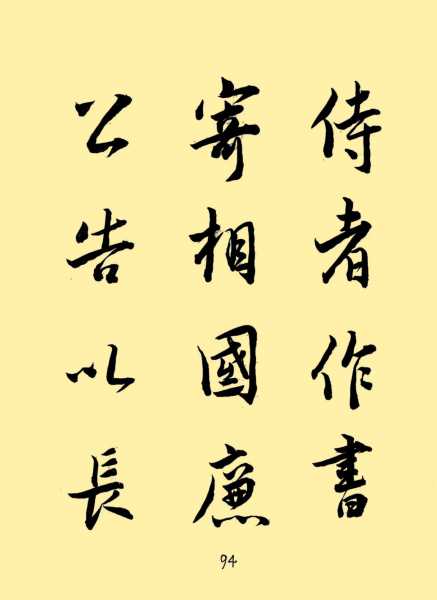 侍者作書
寄相國廉
公告以長
94